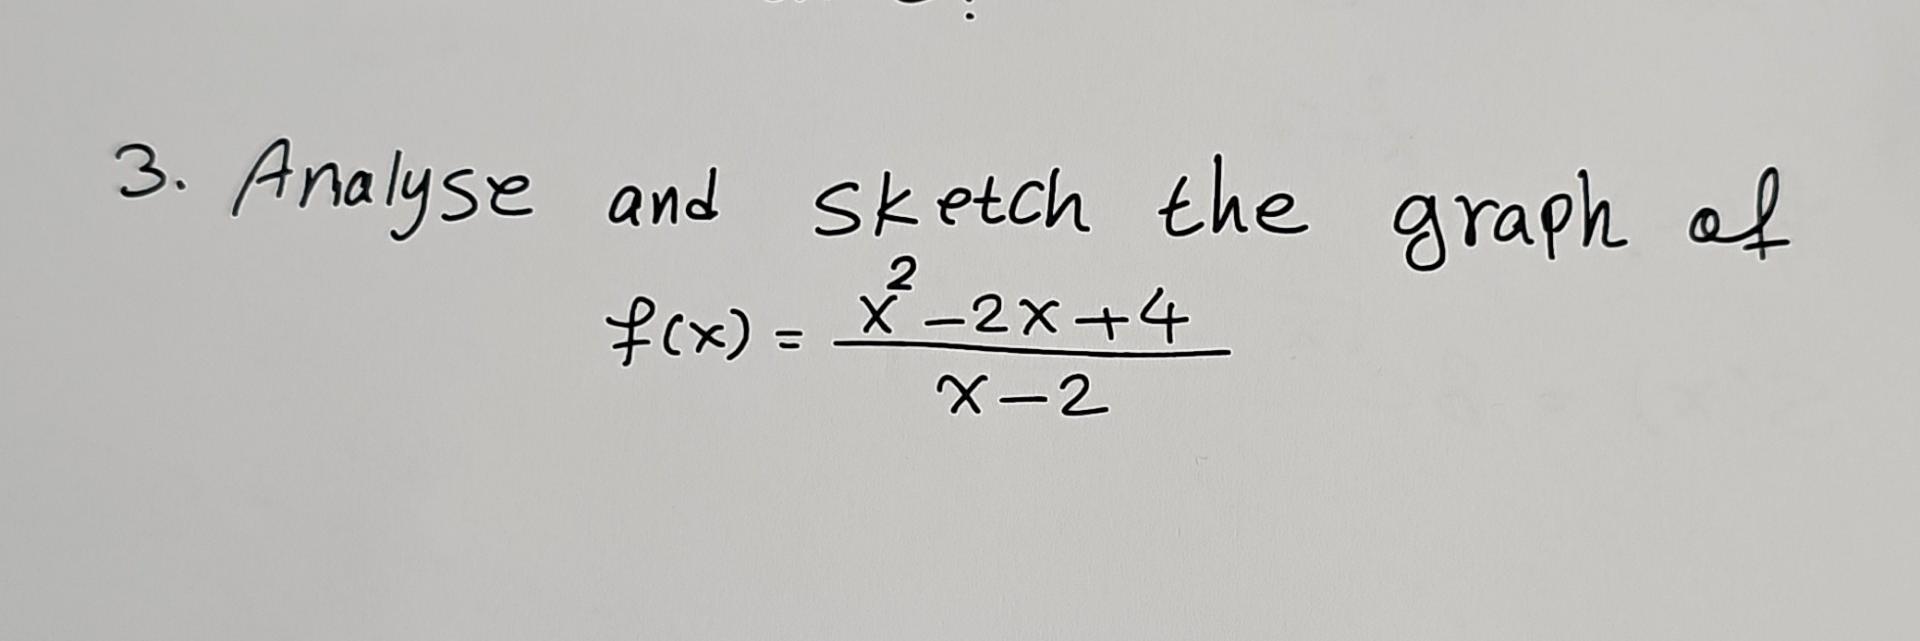 3. Analyse and sketch the graph of
f(x) = \frac{x^2-2x+4}{x-2}